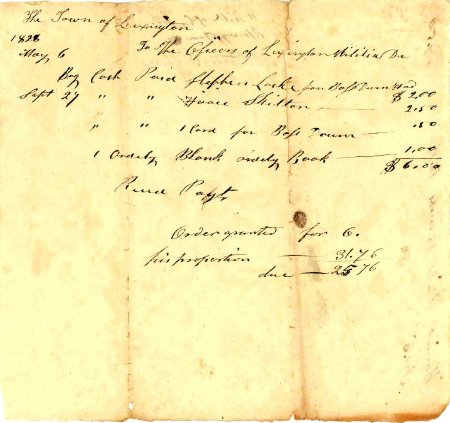 The Town of Lexington
1828 To The Officers of Lexington Militia Dr
May 6
By Cash Paid Stephen Locke for Bass Drum $2.00
Sept 27 " " Isaac Skilton — 2.50
" " 1 Cord for Bass Drum — .50
1 Orderly Blank orderly Book — 1.00
$6.00
Recd Payt
Order granted for 6.
his proportion — 31.76
due — 25.76